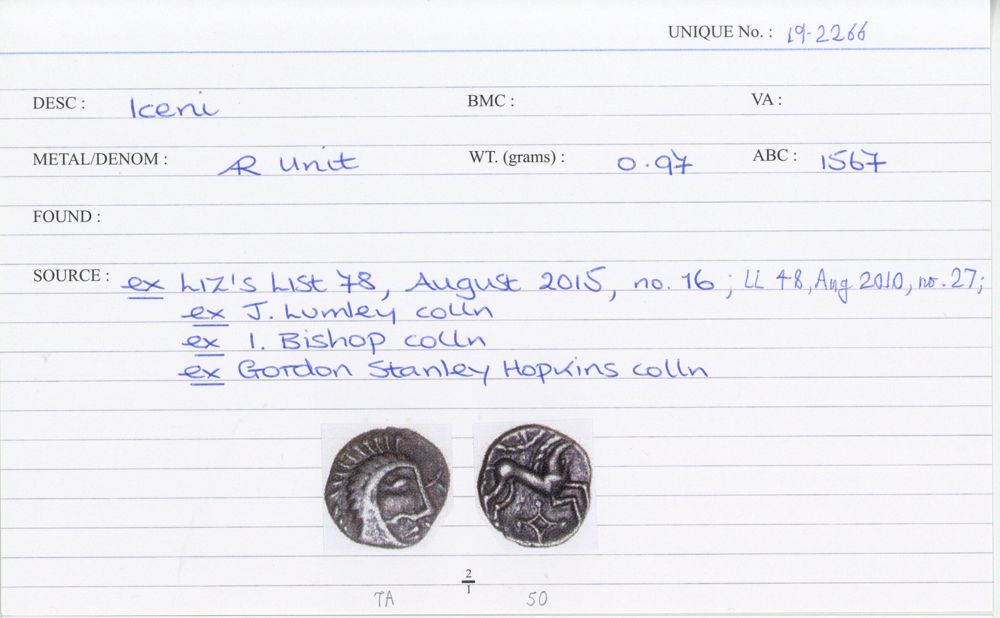 UNIQUE No. : 19-2266
DESC : Iceni BMC : VA :
METAL/DENOM : AR Unit WT. (grams) : 0.97 ABC : 1567
FOUND :
SOURCE : ex Liz's List 78, August 2015, no. 16 ; LL 48, Aug 2010, no. 27;
ex J. Lumley colln
ex I. Bishop colln
ex Gordon Stanley Hopkins colln
2/1
TA 50